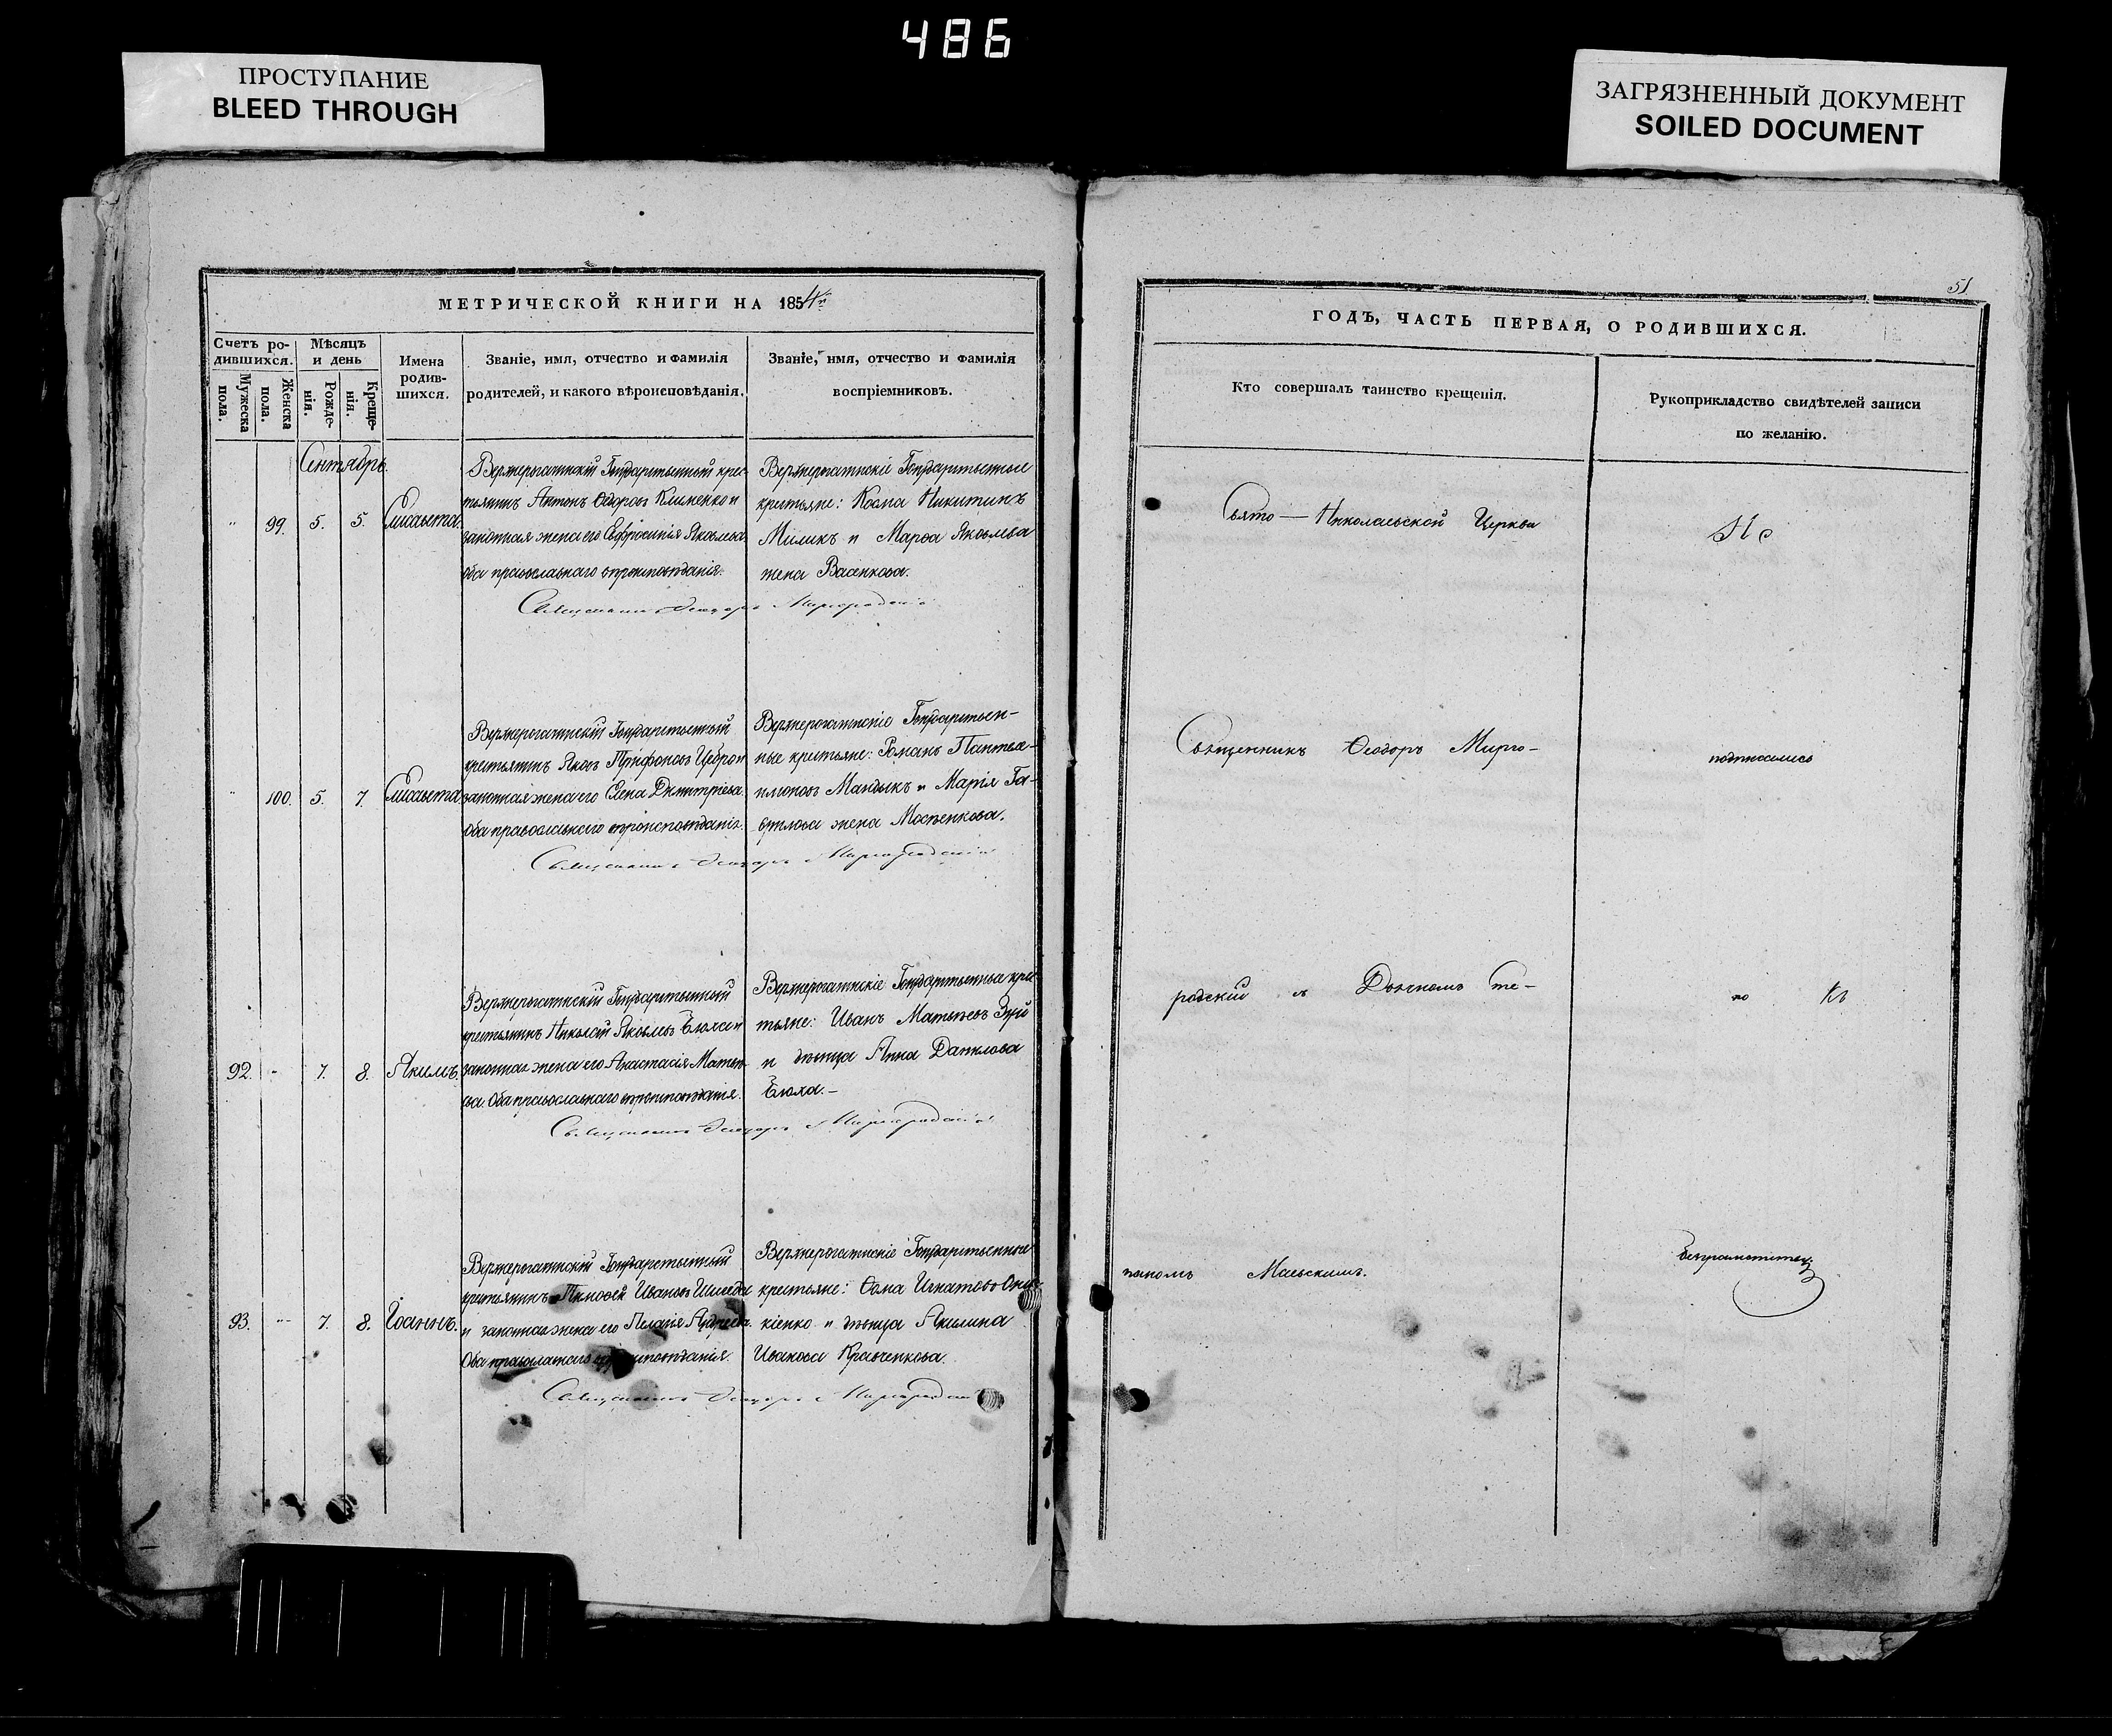 486
ПРОСТУПАНИЕ
BLEED THROUGH
ЗАГРЯЗНЕННЫЙ ДОКУМЕНТ
SOILED DOCUMENT
МЕТРИЧЕСКОЙ КНИГИ НА 1854
Счетъ родившихся.
Мужеска пола.
Женска пола.
Мѣсяцъ и день
Рожденія.
Крещенія.
Имена родившихся.
Званіе, имя, отчество и фамилія
родителей, и какого вѣроисповѣданія.
Званіе, имя, отчество и фамилія
воспріемниковъ.
Сентябрь.
99. 5. 5. Елисавета.
Верхнерогатинскій Государственный крес-
тьянинъ Антонъ Ѳедоровъ Клименко и
законная жена его Евфросинія Яковлева
оба православнаго вѣроисповѣданія.
Верхнерогатинскіе Государственные
крестьяне: Косма Никитинъ
Миликъ и Марѳа Яковлева
жена Васенкова.
Священникъ Ѳеодоръ Миргородскій
100. 5. 7. Елисавета
Верхнерогатинскій Государственный
крестьянинъ Яковъ Трифоновъ и
законная жена его Елена Димитріева.
Оба православнаго вѣроисповѣданія.
Верхнерогатинскіе Государствен-
ные крестьяне: Романъ Пантеле-
имоновъ Мандыкъ и Марія Га-
врилова жена Мосѣенкова.
Священникъ Ѳеодоръ Миргородскій
92. 7. 8. Якимъ.
Верхнерогатинскій Государственный
крестьянинъ Николай Яковлевъ и
законная жена его Анастасія Матвѣе-
ва. Оба православнаго вѣроисповѣданія.
Верхнерогатинскіе Государственные крес-
тьяне: Иванъ Матвѣевъ Зуй
и дѣвица Анна Данилова
Священникъ Ѳеодоръ Миргородскій
93. 7. 8. Іоаннъ.
Верхнерогатинскій Государственный
крестьянинъ Тимоѳей Ивановъ
и законная жена его Пелагія
Оба православнаго вѣроисповѣданія.
Верхнерогатинскіе Государственные
крестьяне: Ѳома Игнатовъ Они-
кіенко и дѣвица Акилина
Иванова Кравченкова.
Священникъ Ѳеодоръ Миргородскій
51
ГОДЪ, ЧАСТЬ ПЕРВАЯ, О РОДИВШИХСЯ.
Кто совершалъ таинство крещенія.
Рукоприкладство свидѣтелей записи
по желанію.
Свято-Николаевской Церкви
Не
Священникъ Ѳеодоръ Мирго-
подписались
родскій съ Дьячкомъ Сте-
по
паномъ Маевскимъ.